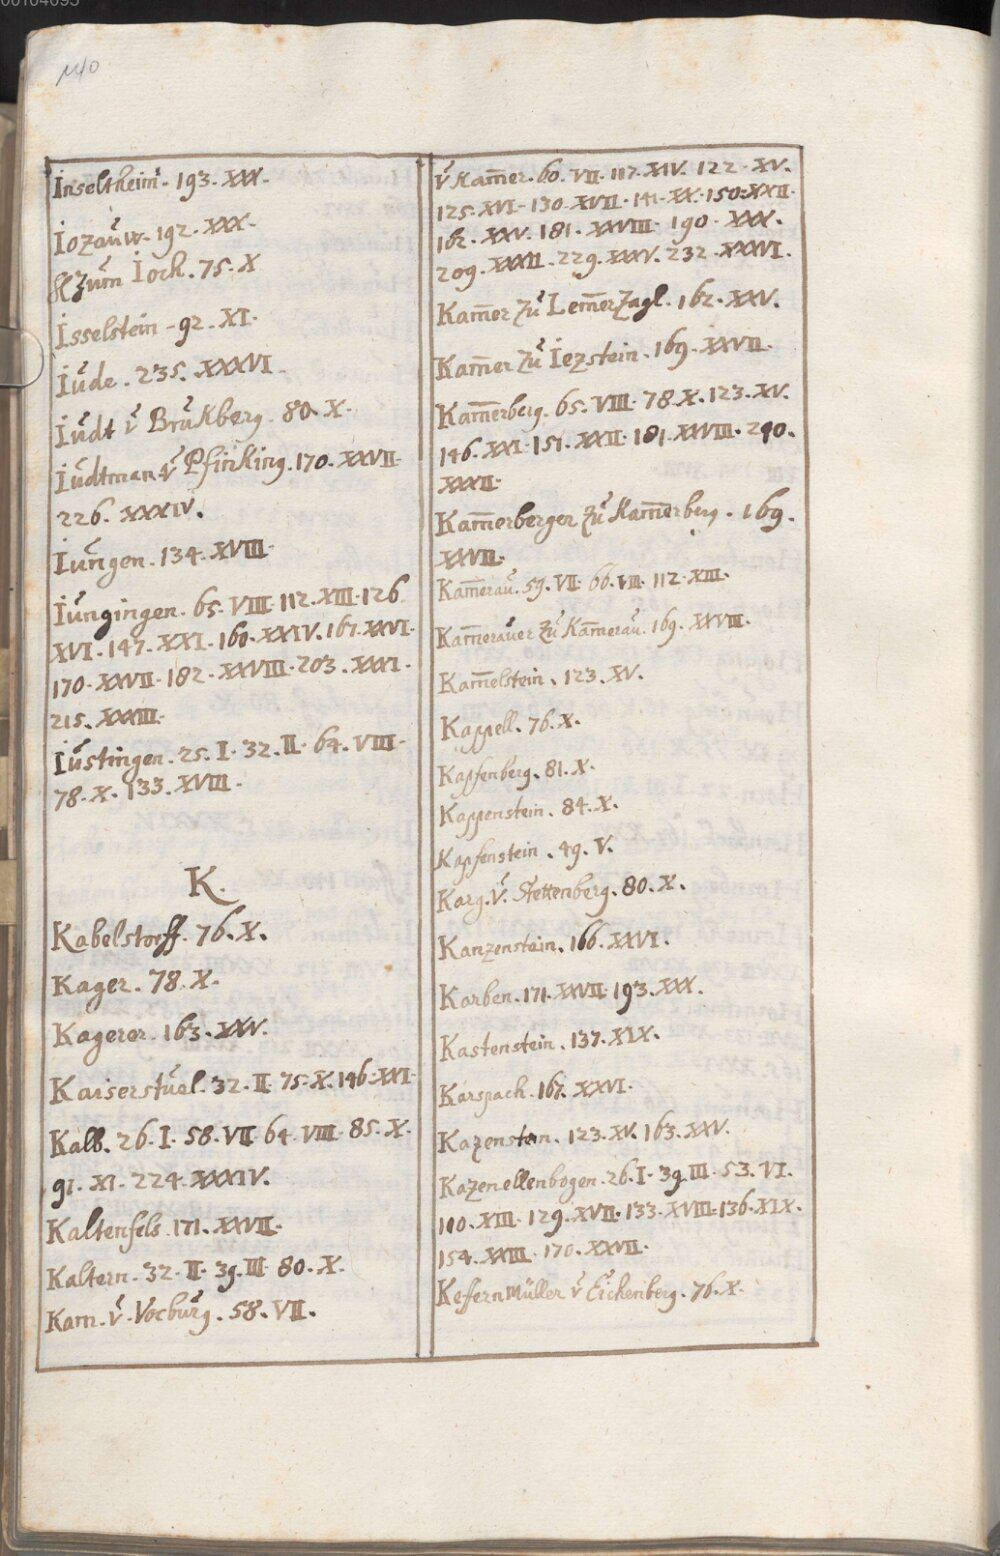 Inseltheim. 193. XXX.
Iozauw. 192. XXX.
zum Ioch. 75. X
Isselstein. 92. XI.
Iude. 235. XXXVI.
Iudt v̆ Brukberg. 80. X.
Iudtman v̆ Pfinking. 170. XXVII.
226. XXXIV.
Iungen. 134. XVIII.
Iungingen. 65. VIII. 112. XIII. 126
XVI. 147. XXI. 160. XXIV. 167. XXVI.
170. XXVII. 182. XXVIII. 203. XXXI.
215. XXXIII.
Iustingen. 25. I. 32. II. 64. VIII.
78. X. 133. XVIII.
K.
Kabelstorff. 76. X.
Kager. 78. X.
Kagerer. 163. XXV.
Kaiserstuel. 32. II. 75. X. 146. XXI.
Kalb. 26. I. 58. VII. 64. VIII. 85. X.
91. XI. 224. XXXIV.
Kaltenfels. 171. XXVII.
Kaltern. 32. II. 39. III. 80. X.
Kam. v̆. Vocburg. 58. VII.
v̆ Kam̄er. 60. VII. 117. XIV. 122. XV.
125. XVI. 130. XVII. 141. XX. 150. XXII.
162. XXV. 181. XXVIII. 190. XXX.
209. XXXII. 229. XXXV. 232. XXXVI.
Kam̄er zu Lem̄erzagl. 162. XXV.
Kam̄er zu Iezstein. 169. XXVII.
Kam̄erberg. 65. VIII. 78. X. 123. XV.
146. XXI. 151. XXII. 181. XXVIII. 290.
XXXII.
Kam̄erberger zu Kam̄erberg. 169.
XXVII.
Kam̄erau. 59. VII. 66. VIII. 112. XIII.
Kam̄erauer zu Kam̄erau. 169. XXVII.
Kam̄elstein. 123. XV.
Kappell. 76. X.
Kapfenberg. 81. X.
Kappenstein. 84. X.
Kapfenstein. 49. V.
Karg. v̆. Stettenberg. 80. X.
Kanzenstein. 166. XXVI.
Karben. 171. XXVII. 193. XXX.
Kastenstein. 137. XIX.
Karspach. 167. XXVI.
Kazenstein. 123. XV. 163. XXV.
Kazenellenbogen. 26. I. 39. III. 53. VI.
110. XIII. 129. XVII. 133. XVIII. 136. XIX.
154. XXIII. 170. XXVII.
Kefernmüller v̆ Eichenberg. 76. X.